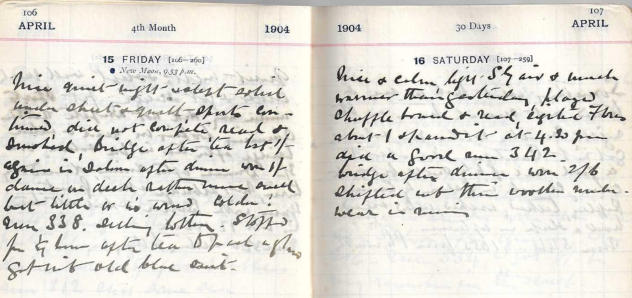 106
APRIL
4th Month
1904
15 FRIDAY [106-260]
● New Moon, 9.53 p.m.
Nice quiet night & slept well
under sheet & quilt sports con-
tinued, did not compete read &
smoked, Bridge after tea lost 1/-
again in Saloon after dinner won 1/-
dance on deck rather more swell
but little or no wind colder:
run 338.
for ½ hour after tea to
got into old blue suit.
1904
30 Days
107
APRIL
16 SATURDAY [107-259]
Nice & calm light S'ly air & much
warmer than yesterday, played
shuffle board & read,
about at 4.30 pm
did a good run 342.
bridge after dinner: won 2/6
shifted into thin woollen under-
wear